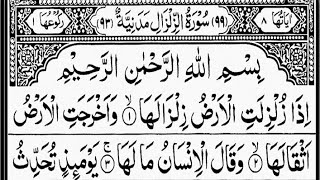 اٰيَاتُهَا ٨ (٩٩) سُوْرَةُ الزِّلْزَالِ مَدَنِيَّةٌ (٩٣) رُكُوْعُهَا ١
بِسْمِ اللّٰهِ الرَّحْمٰنِ الرَّحِيْمِ
اِذَا زُلْزِلَتِ الْاَرْضُ زِلْزَالَهَا ۙ﴿۱﴾ وَاَخْرَجَتِ الْاَرْضُ
اَثْقَالَهَا ۙ﴿۲﴾ وَقَالَ الْاِنْسَانُ مَا لَهَا ۚ﴿۳﴾ يَوْمَئِذٍ تُحَدِّثُ